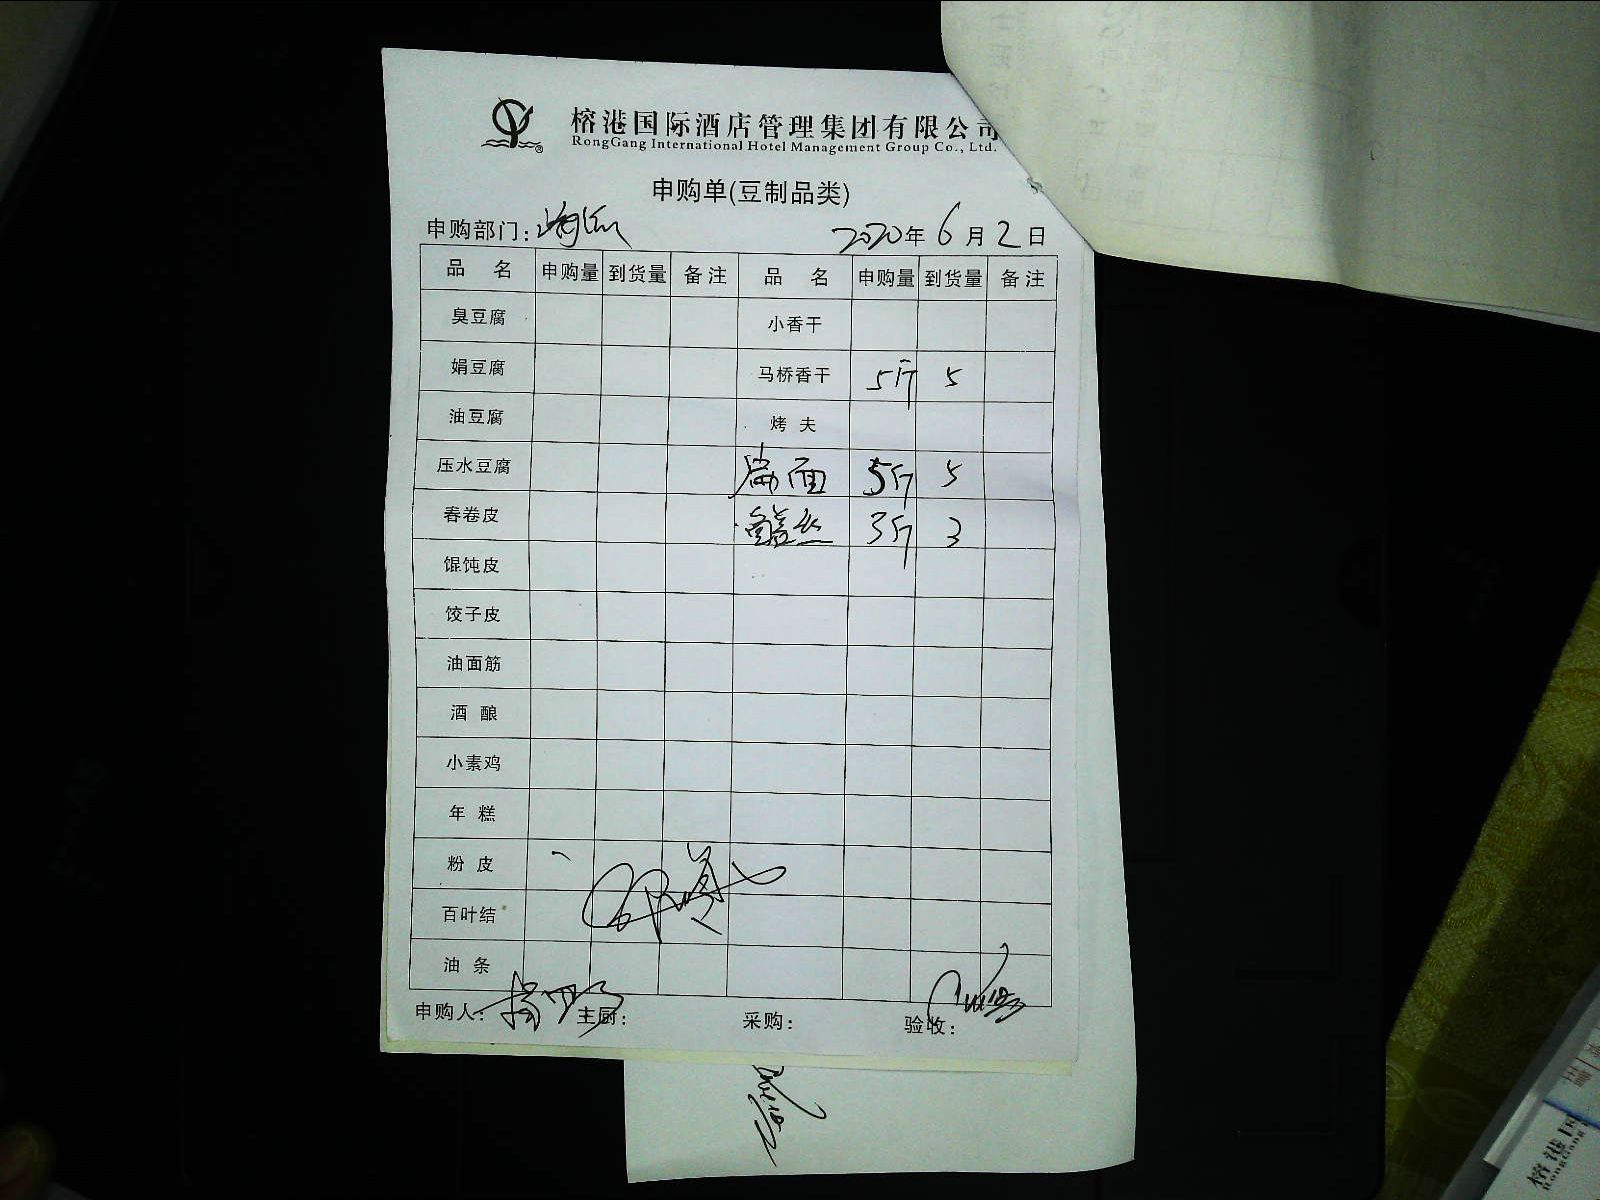 榕港国际酒店管理集团有限公司
RongGang International Hotel Management Group Co., Ltd.
申购单(豆制品类)
申购部门： 2020年6月2日
品名 申购量 到货量 备注 品名 申购量 到货量 备注
臭豆腐 小香干
娟豆腐 马桥香干 5斤 5
油豆腐 烤夫
压水豆腐 扁面 5斤 5
春卷皮 丝 3斤 3
馄饨皮
饺子皮
油面筋
酒酿
小素鸡
年糕
粉皮
百叶结
油条
申购人： 主厨： 采购： 验收：
榕港国
RongGang